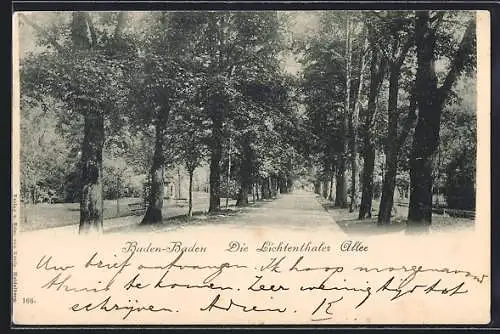 Baden-Baden Die Lichtenthaler Allee
Uw brief ontvangen. Ik hoop morgenavond
thuis te komen. Zeer weinig tijd tot
schrijven. Adrien. K
166.